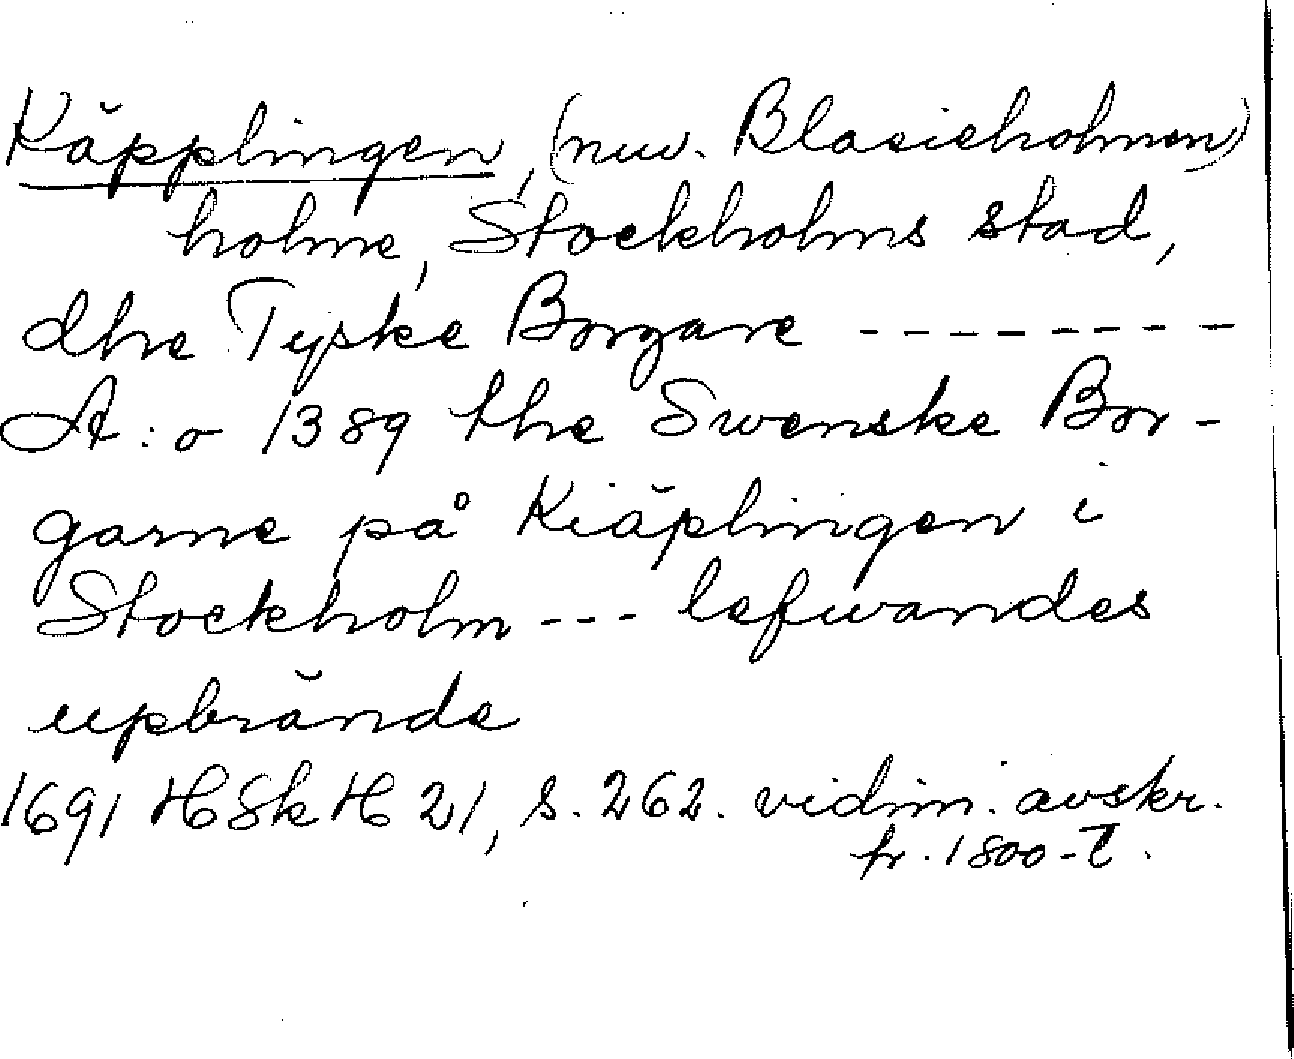 Käpplingen, (nuv. Blasieholmen)
holme, Stockholms stad,
dhe Tyske Borgare ---------
A:o 1389 the Swenske Bor-
garne på Kiäplingen i
Stockholm --- lefwandes
upbrände
1691 HSkH 21, s. 262. vidim. avskr.
fr. 1800-t.